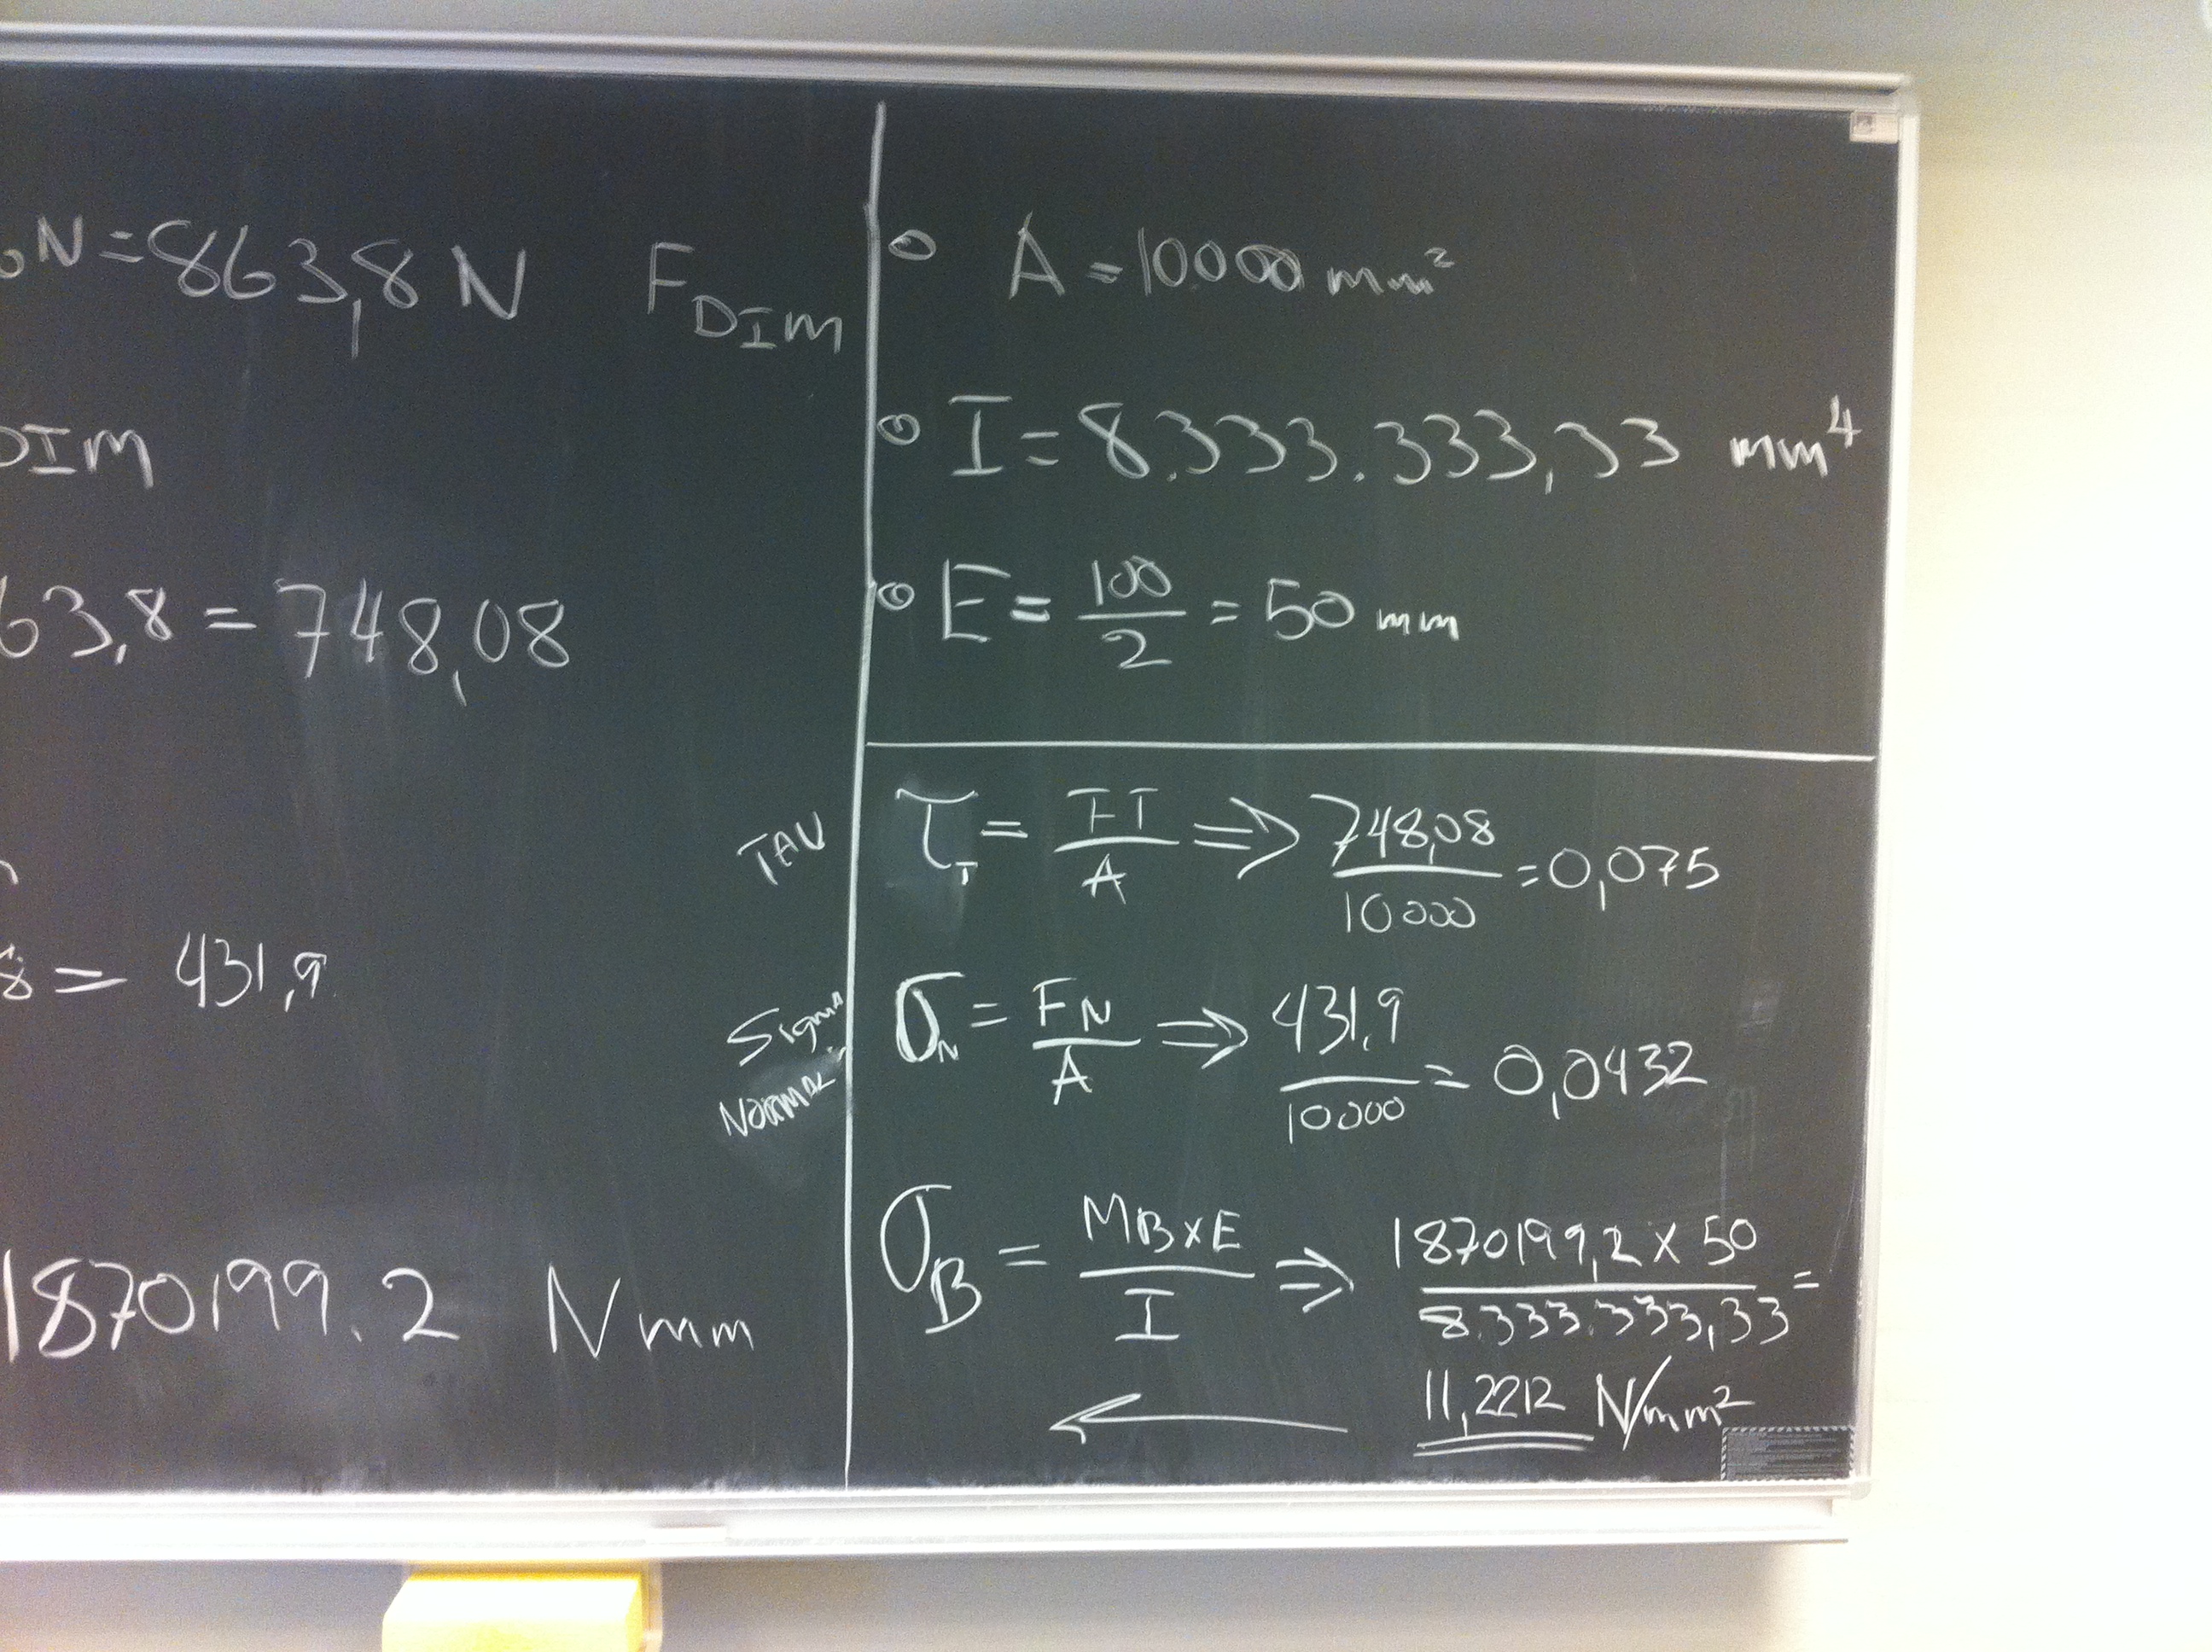 N=863,8 N F DIM
DIM
63,8 = 748,08
8= 431,9
1870199.2 Nmm
A = 10.000 mm²
I = 8.333.333,33 mm⁴
E = 100/2 = 50 mm
TAU
τT = FT/A ⇒ 748,08/10000 = 0,075
Sigma
Normal
σN = FN/A ⇒ 431,9/10000 = 0,0432
σB = MB×E/I ⇒ 1870199,2 × 50/8.333.333,33 =
← 11,2212 N/mm²